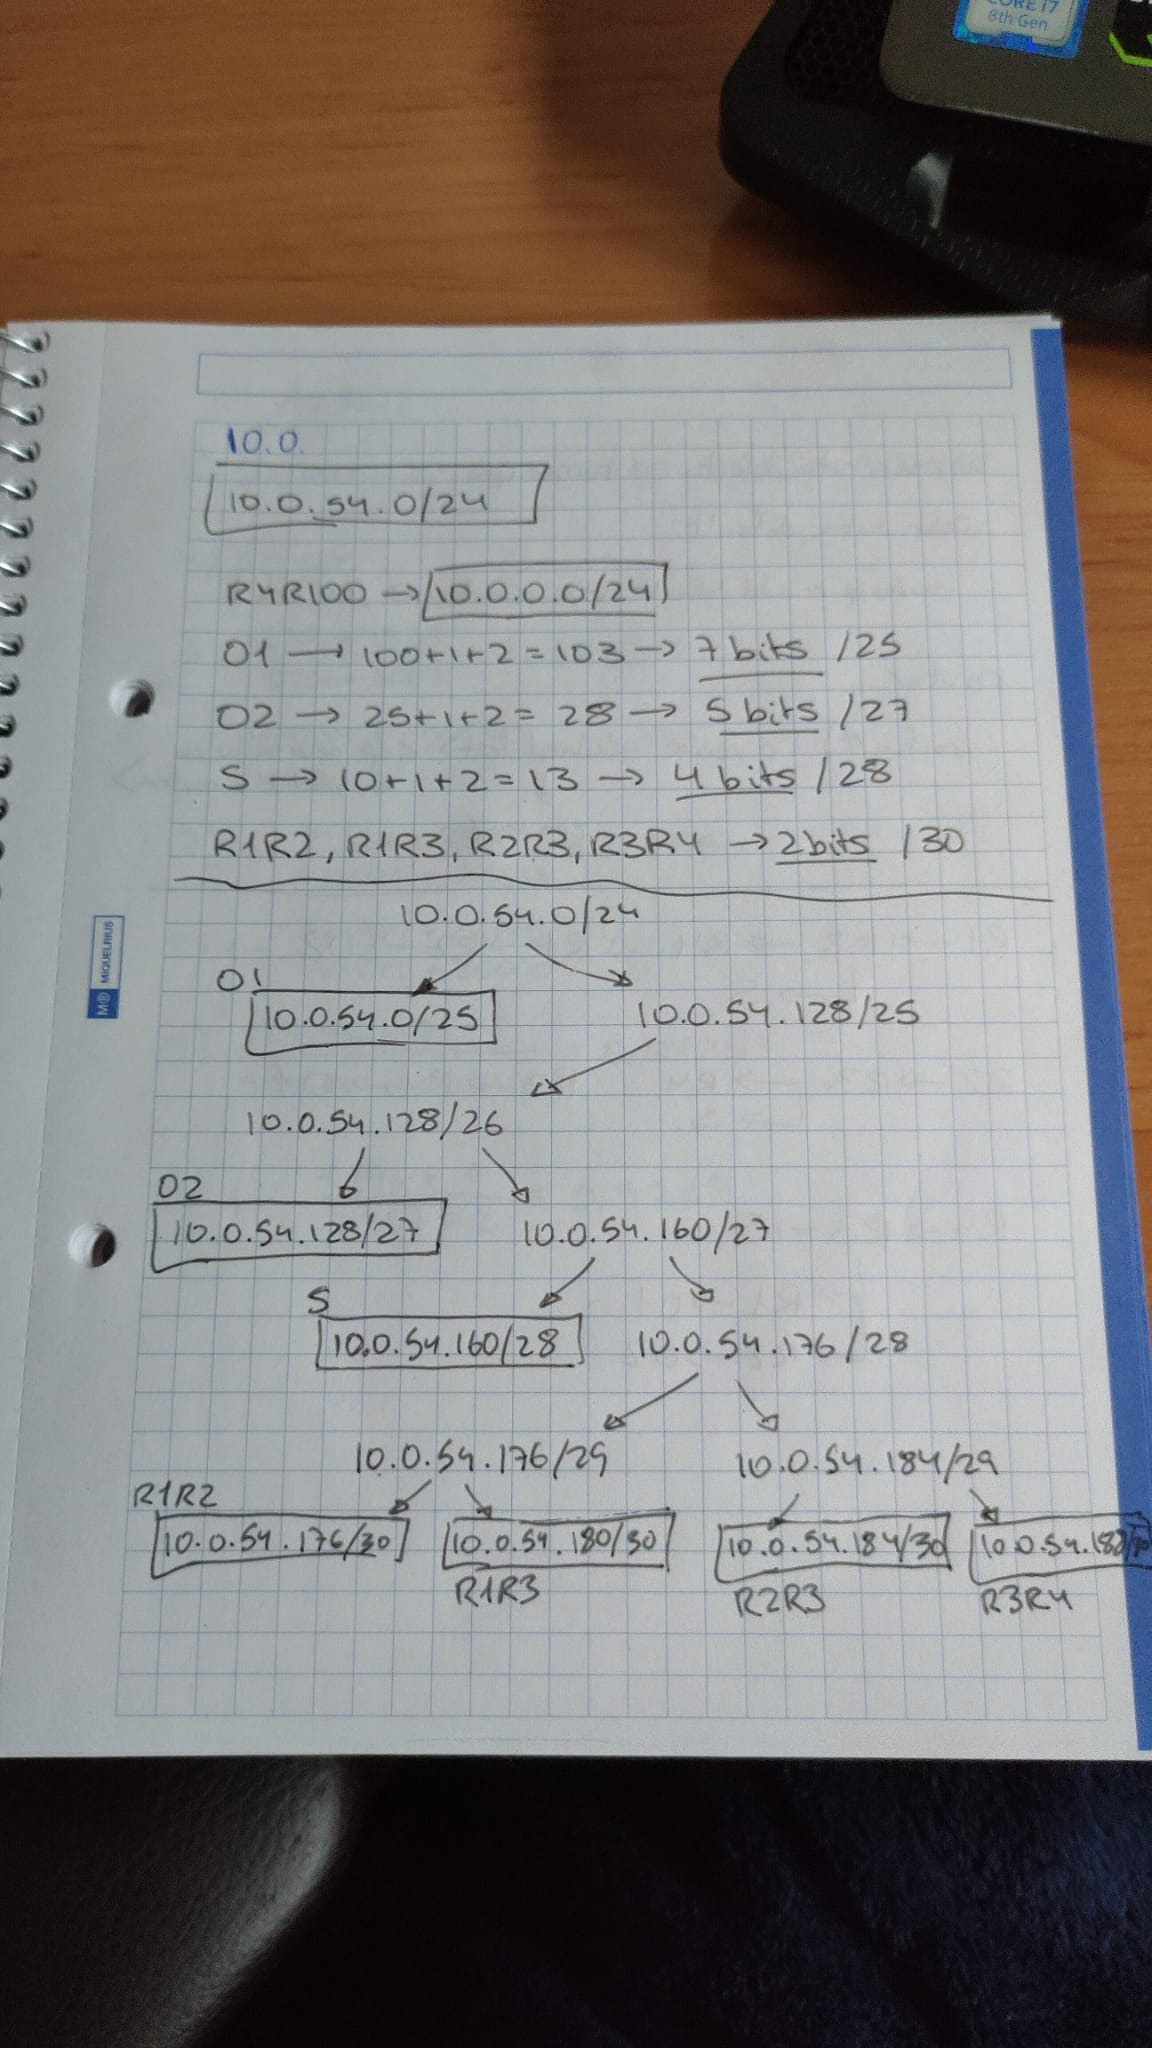 CORE i7
8th Gen
10.0.
10.0.54.0/24
R4R100 → 10.0.0.0/24
O1 → 100+1+2=103 → 7bits /25
O2 → 25+1+2= 28 → 5bits /27
S → 10+1+2=13 → 4bits /28
R1R2, R1R3, R2R3, R3R4 → 2bits /30
10.0.54.0/24
O1
10.0.54.0/25 10.0.54.128/25
10.0.54.128/26
O2
10.0.54.128/27 10.0.54.160/27
S
10.0.54.160/28 10.0.54.176/28
10.0.54.176/29 10.0.54.184/29
R1R2
10.0.54.176/30 10.0.54.180/30 10.0.54.184/30 10.0.54.188/30
R1R3 R2R3 R3R4
M® MIQUELRIUS